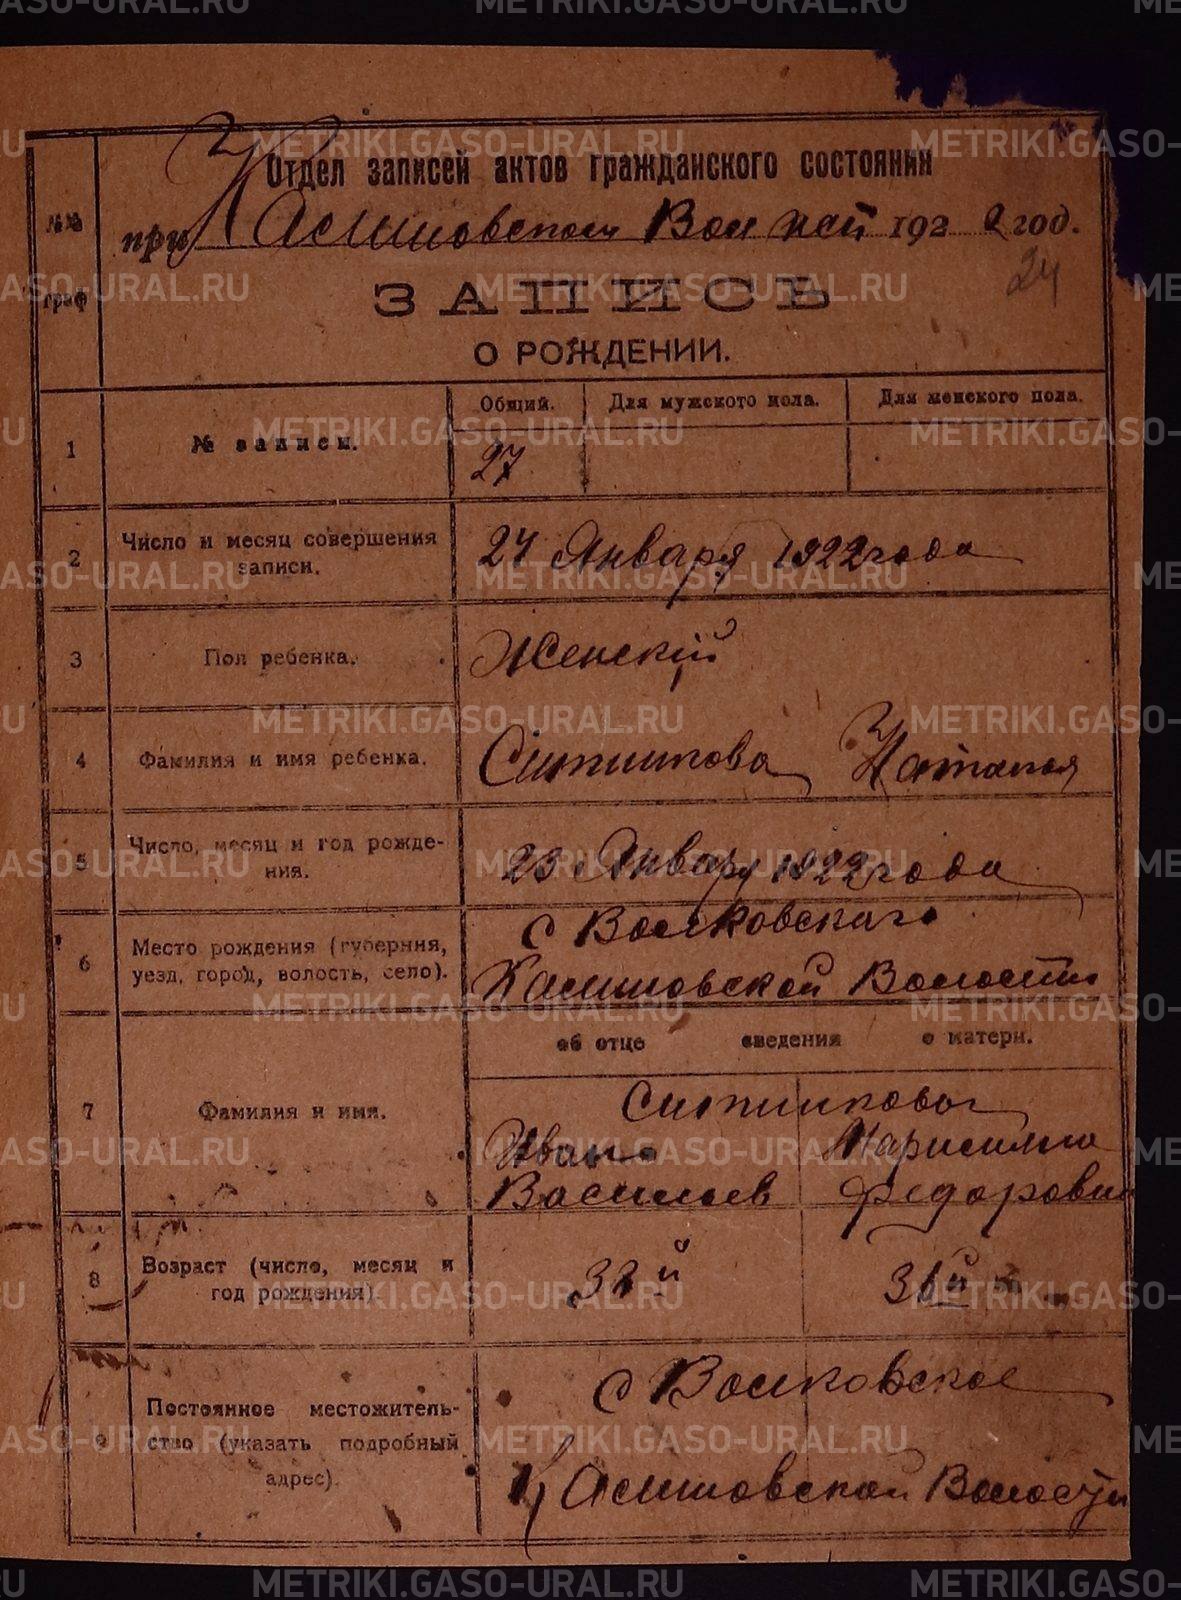 METRIKI.GASO-URAL.RU
Отдел записей актов гражданского состояния
№№ граф
при Каслинском Вол 1922 год.
24
ЗАПИСЬ
О РОЖДЕНИИ.
Общий. Для мужского пола. Для женского пола.
1 № записи. 27
2 Число и месяц совершения записи. 24 Января 1922 года
3 Пол ребенка. Женский
4 Фамилия и имя ребенка. Ситникова Наталья
5 Число, месяц и год рождения. 23 Января 1922 года
6 Место рождения (губерния, уезд, город, волость, село). с Волковскаго
Волости
об отце сведения о матери.
7 Фамилия и имя. Ситниковы
Иван
Васильев Федоровна
8 Возраст (число, месяц и год рождения). 
9 Постоянное местожительство (указать подробный адрес). с Волковское
Волости